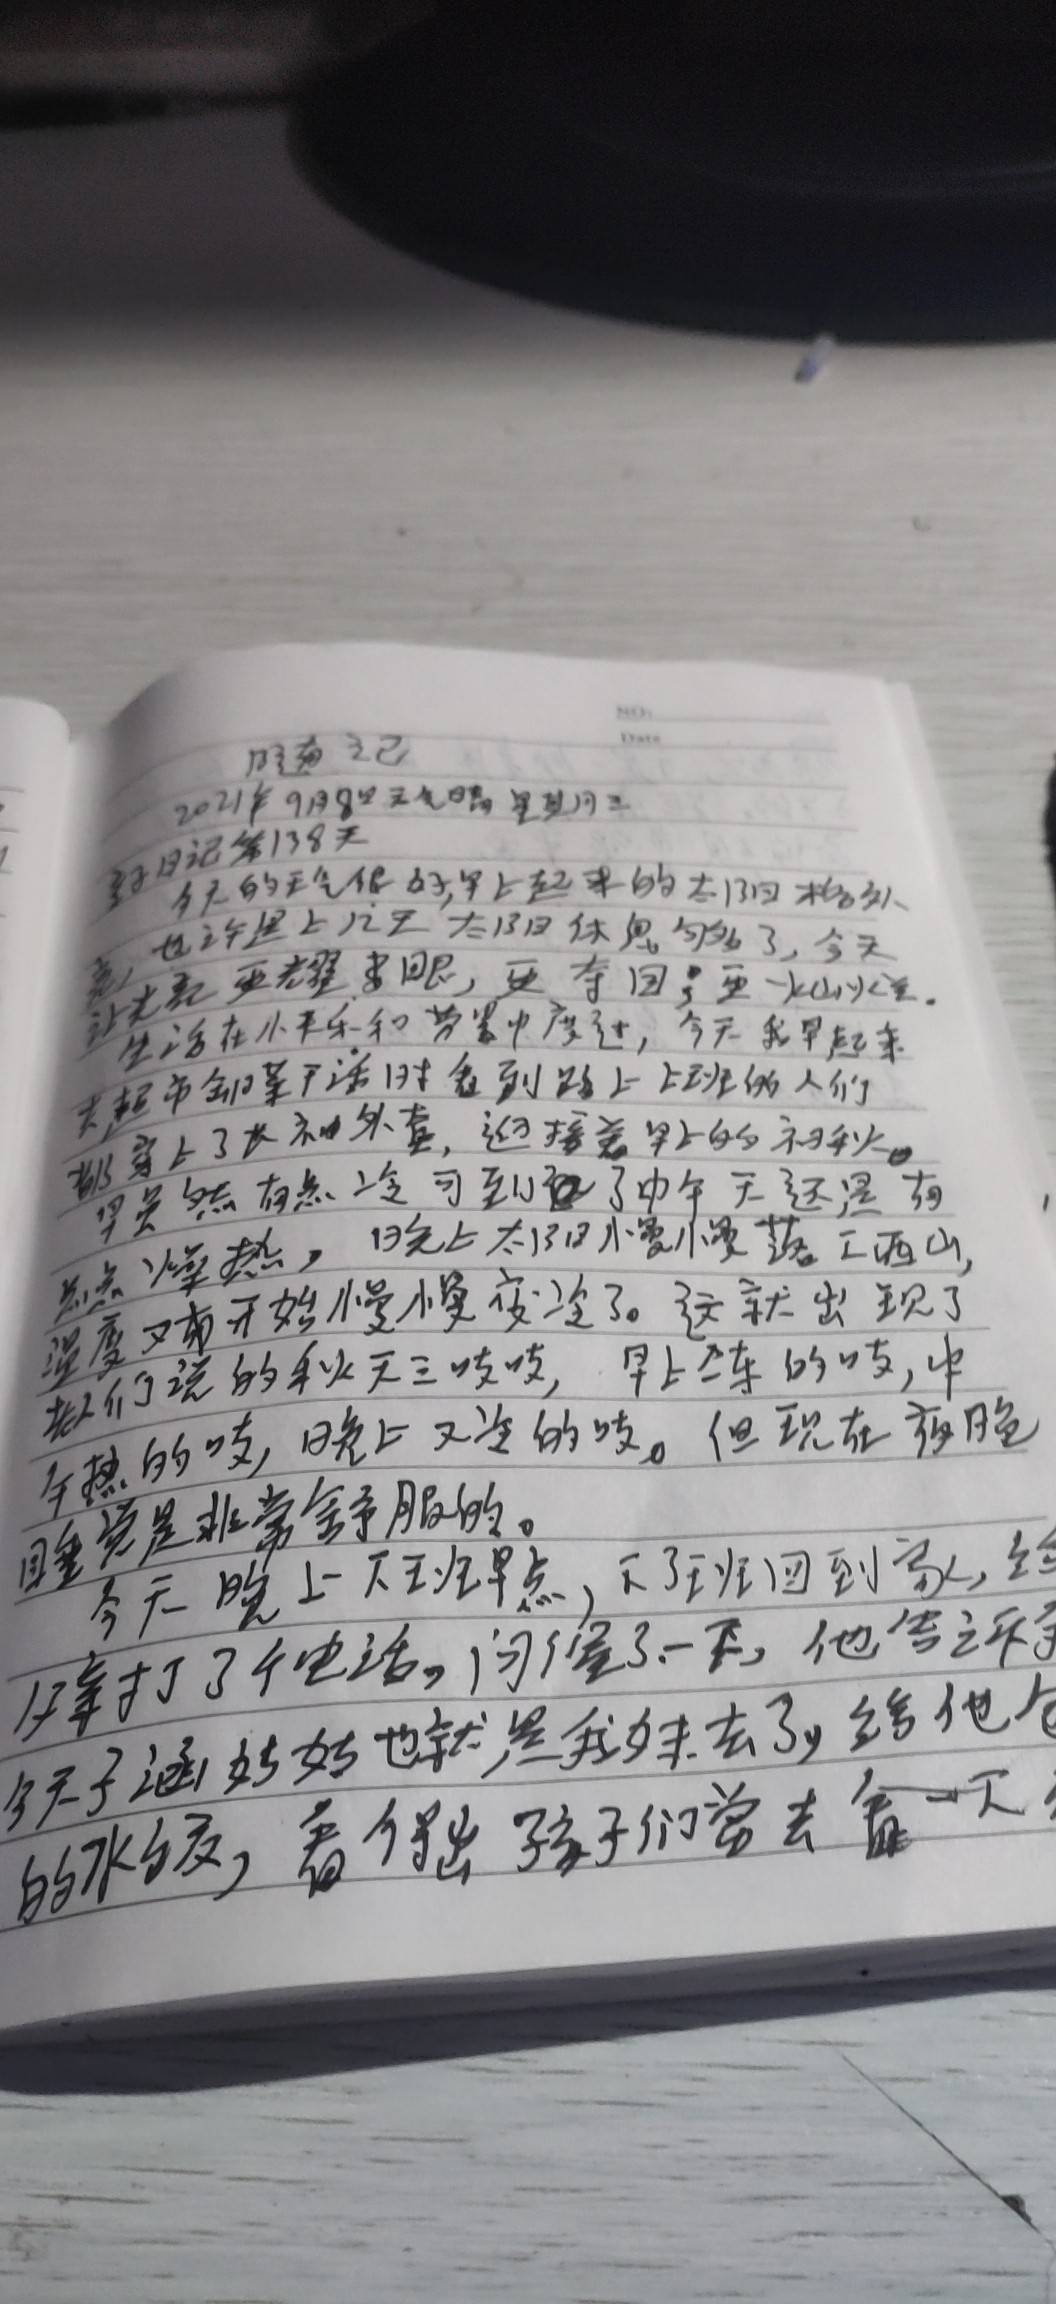 NO:
Date
随笔记
2021年9月8日天气晴 星期三
亲子日记第138天
今天的天气很好,早上起来的太阳格外
亮,也许是上几天太阳休息够了,今天
让光亮更耀眼,更夺目,更火山火
生活在小平乐和劳累中度过,今天我早起来
去超市 干活时看到路上上班的人们
都穿上了长袖外套,迎接着早上的初秋。
早虽然有点冷可到了中午天还是有
点点燥热,晚上太阳慢慢落下西山,
温度又有开始慢慢变冷了。这就出现了
老人们说的秋天三吱吱,早上冻的吱,中
午热的吱,晚上又冷的吱。但现在夜晚
睡觉是非常舒服的。
今天晚上下班早点,下了班回到家,给
打了个电话。问候了一下,他告诉
今天子涵姑姑也就是我妹去了,给他包
的水饺,看得出孩子们当去 一天